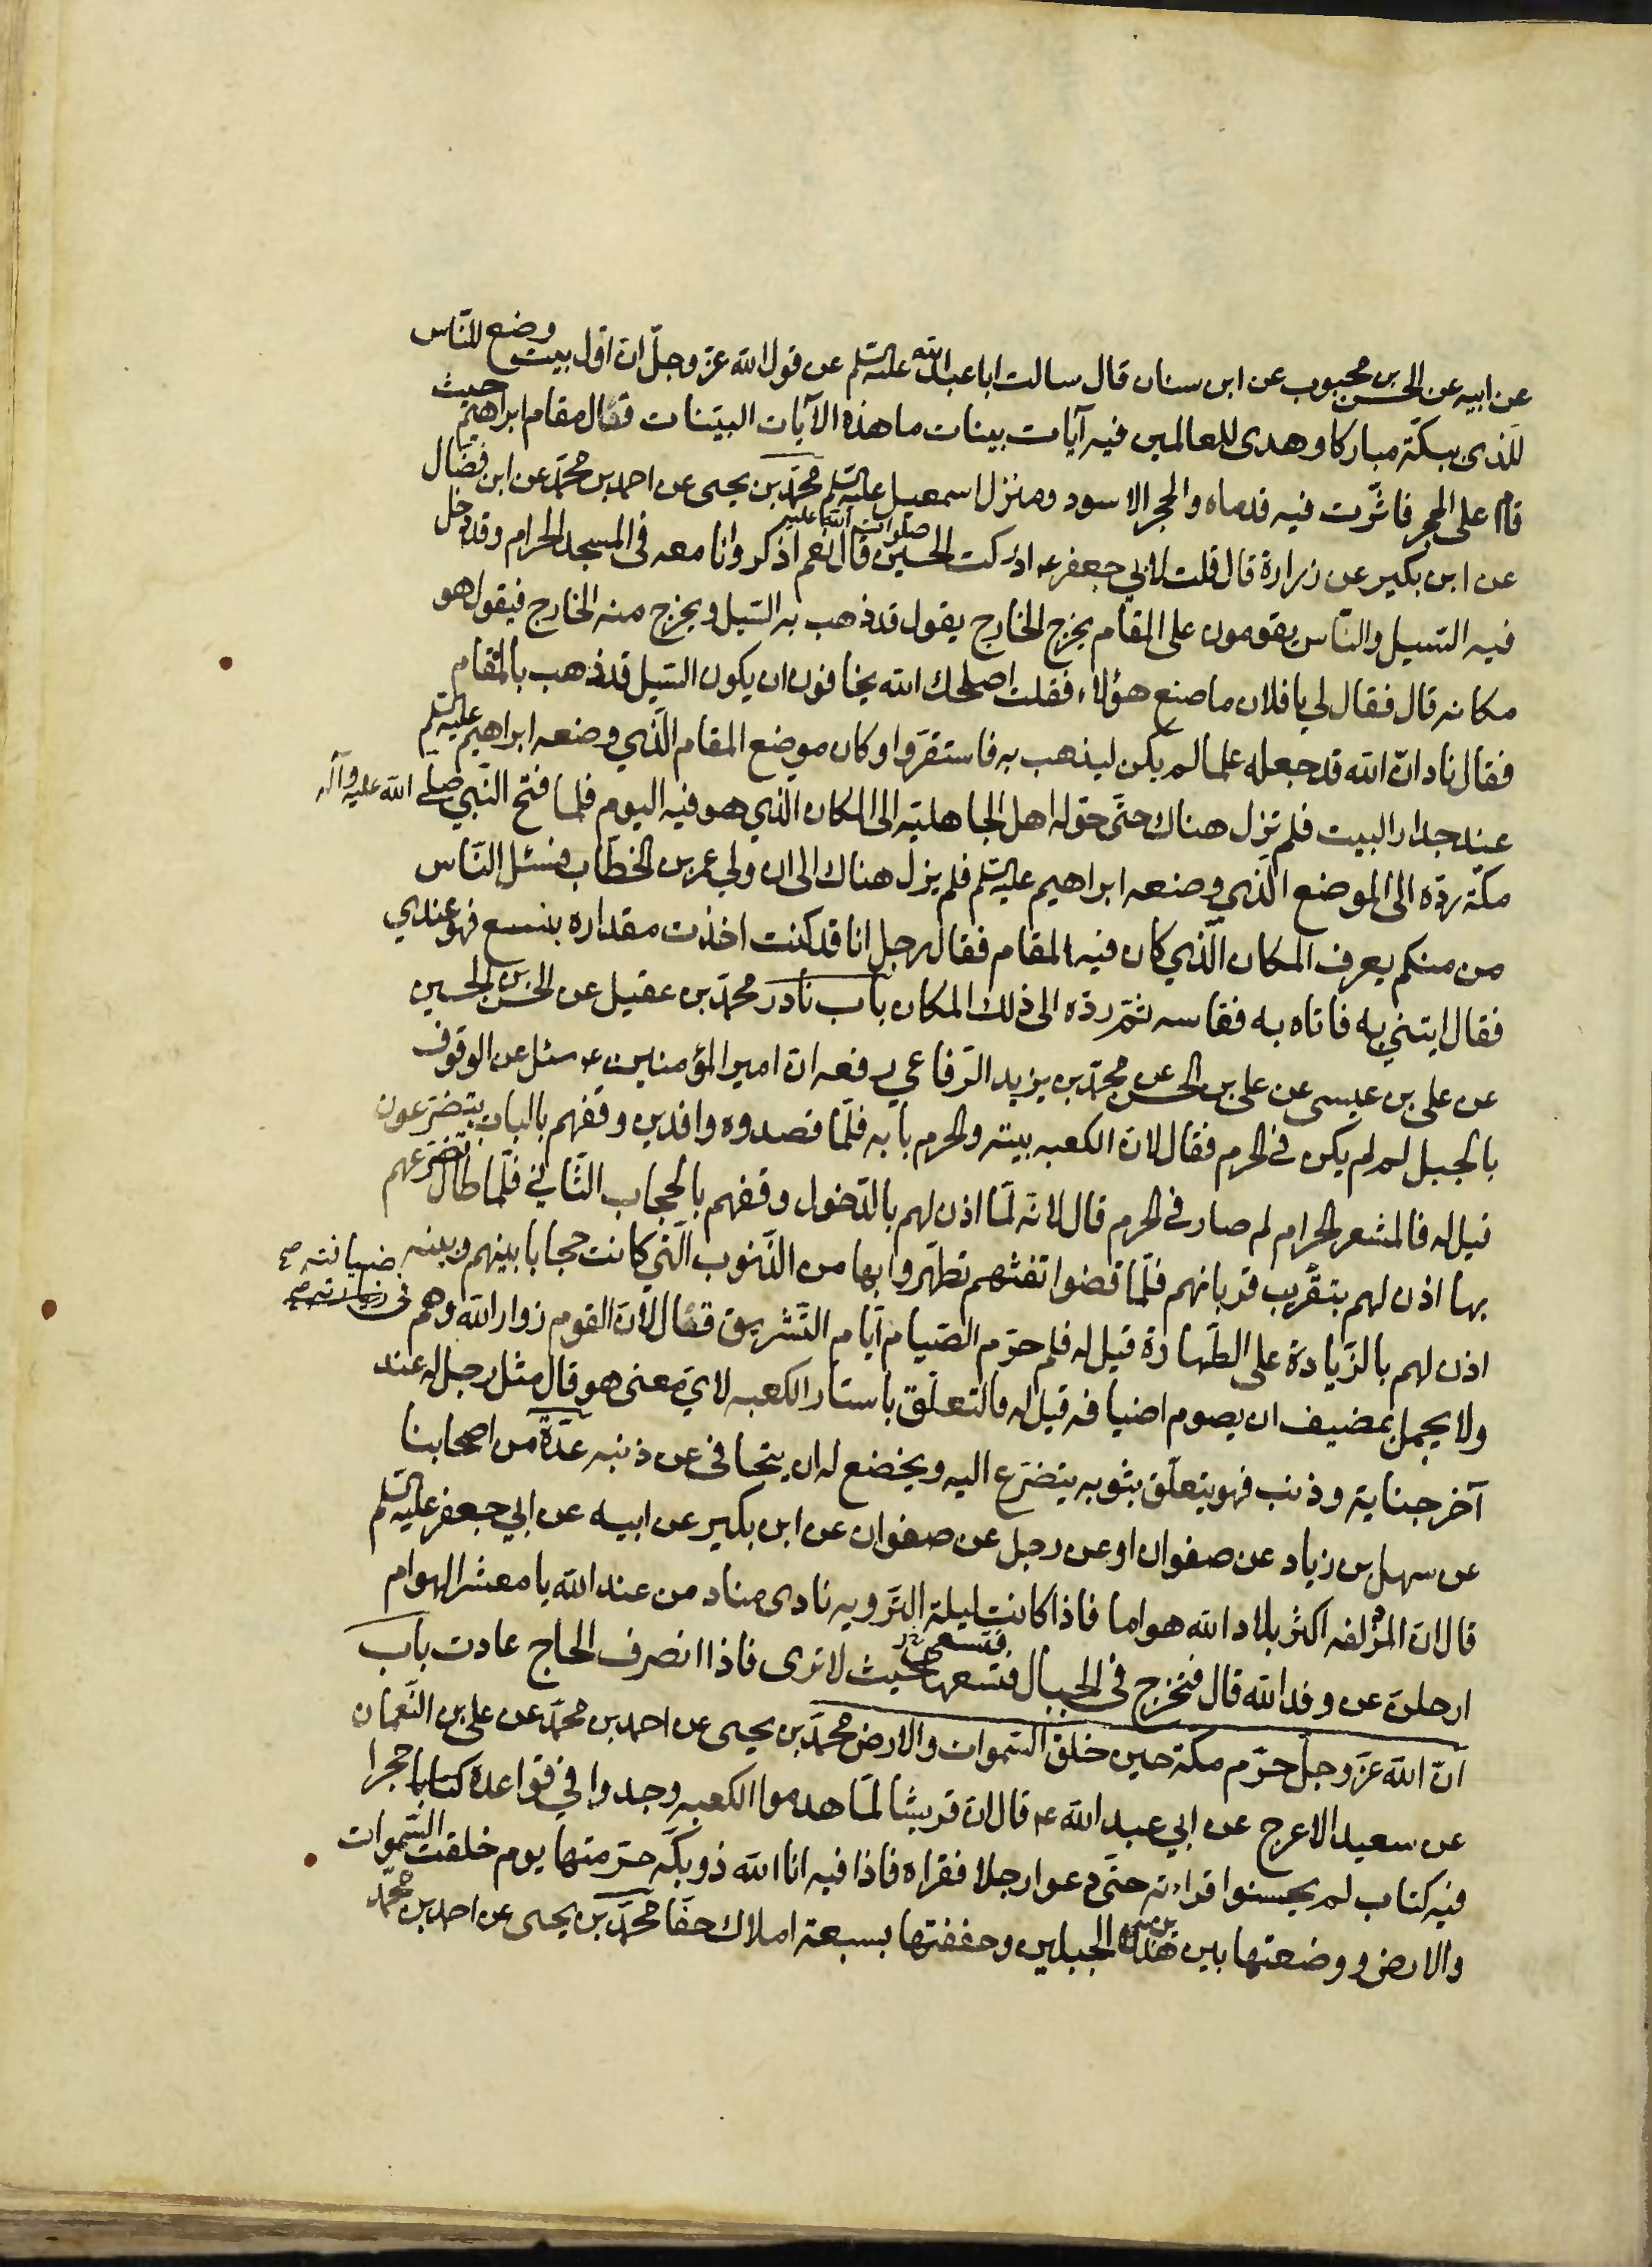 عن ابيه عن الحسن بن محبوب عن ابن سنان قال سالت ابا عبد الله عليه السلم عن قول الله عز وجلّ ان اوّل بيت وضع للنّاس
للّذى ببكّة مباركا وهدى للعالمين فيه آيات بينات ما هذه الآيات البيّنات فقال مقام ابراهيم حيث
قام على الحجر فاثّرت فيه قدماه والحجر الاسود ومنزل اسمعيل عليه السلم محمّد بن يحيى عن احمد بن محمّد عن ابن فضّال
عن ابن بكير عن زرارة قال قلت لابي جعفر ع ادركت الحسين صلوات الله عليه قال نعم اذكر وانا معه فى المسجد الحرام وقد دخل
فيه السّيل والنّاس يقومون على المقام يخرج الخارج يقول قد ذهب به السّيل ويخرج منه الخارج فيقول هو
مكانه قال فقال لي يا فلان ما صنع هؤلاء فقلت اصلحك الله يخافون ان يكون السّيل قد ذهب بالمقام
فقال ناد انّ الله قد جعله علما لم يكن ليذهب به فاستقرّوا وكان موضع المقام الّذي وضعه ابراهيم عليه السلم
عند جدار البيت فلم يزل هناك حتّى حوّله اهل الجاهليّه الى المكان الذي هو فيه اليوم فلما فتح النّبي صلّى الله عليه وآله
مكّة ردّه الى الموضع الّذي وضعه ابراهيم عليه السلم فلم يزل هناك الى ان ولي عمر بن الخطّاب فسئل النّاس
من منكم يعرف المكان الّذي كان فيه المقام فقال رجل انا قد كنت اخذت مقداره بنسع فهو عندي
فقال ايتني به فاتاه به فقاسه ثمّ ردّه الى ذلك المكان باب نادر محمّد بن عقيل عن الحسن بن الحسين
عن على بن عيسى عن على بن الحسن عن محمّد بن يزيد الرّفاعي رفعه انّ امير المؤمنين ع سئل عن الوقوف
بالجبل لم لم يكن فى الحرم فقال لانّ الكعبه بيته والحرم بابه فلّما قصدوه وافدين وقفهم بالباب يتضرّعون
قيل له فالمشعر الحرام لم صار فى الحرم قال لانّه لمّا اذن لهم بالدّخول وقفهم بالحجاب الثّاني فلّما طال تضرّعهم
بها اذن لهم بتقريب قربانهم فلّما قضوا تفثهم تطهّروا بها من الذّنوب الّتي كانت حجابا بينهم وبينه
اذن لهم بالزّيادة على الطّهارة قيل له فلم حرّم الصّيام ايّام التّشريق فقال لانّ القوم زوار الله وهم فى ضيافته
ولا يجمل بمضيف ان يصوم اضيافه قيل له فالتعلّق باستار الكعبه لايّ معنى هو قال مثل رجل له عند
آخر جناية وذنب فهو يتعلّق بثوبه يتضرّع اليه ويخضع له ان يتجافى عن ذنبه عدّة من اصحابنا
عن سهل بن زياد عن صفوان او عن رجل عن صفوان عن ابن بكير عن ابيه عن ابي جعفر عليه السلم
قال انّ المزدلفه اكثر بلاد الله هواما فاذا كانت ليلة التّرويه نادى مناد من عند الله يا معشر الهوام
ارحلن عن وفد الله قال فتخرج فى الجبال فتسعها حيث لا ترى فاذا انصرف الحاج عادت باب
انّ الله عزّ وجلّ حرّم مكة حين خلق السّموات والارض محمّد بن يحيى عن احمد بن محمّد عن على بن النّعمان
عن سعيد الاعرج عن ابي عبد الله ع قال انّ قريشا لمّا هدموا الكعبه وجدوا في قواعده حجرا
فيه كتاب لم يحسنوا قراءته حتّى دعوا رجلا فقراه فاذا فيه انا الله ذو بكّه حرّمتها يوم خلقت السّموات
والارض ووضعتها بين هذين الجبلين وحففتها بسبعة املاك حفّا محمّد بن يحيى عن احمد بن محمّد